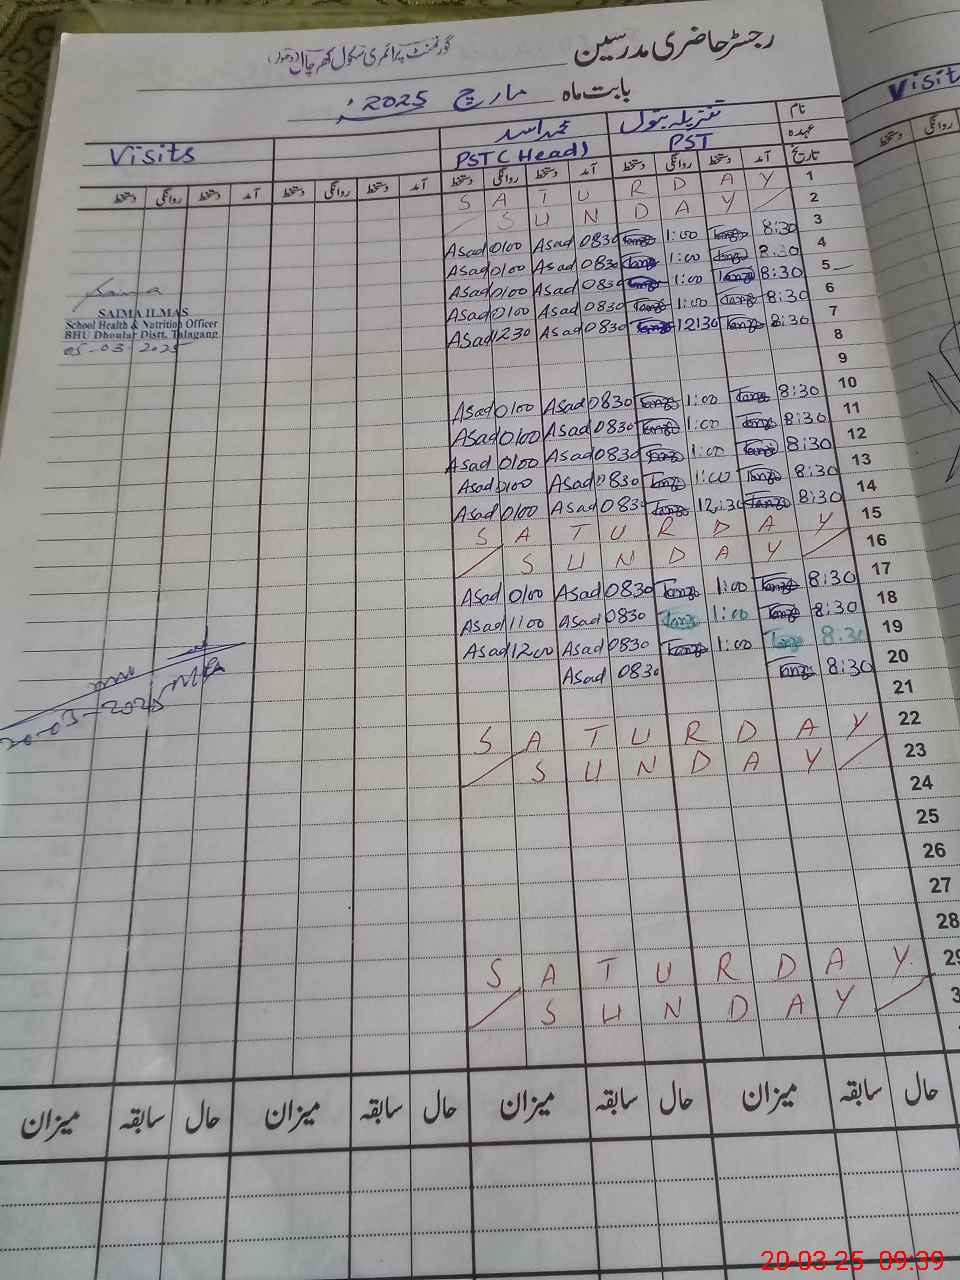 رجسٹر حاضری مدرسین گورنمنٹ پرائمری سکول کھر چال
بابت ماہ مارچ 2025ء
نام تنزیلہ بتول محمد اسد Visits
عہدہ PST PST (Head)
تاریخ آمد دستخط روانگی دستخط آمد دستخط روانگی دستخط آمد دستخط روانگی دستخط آمد دستخط روانگی دستخط
S A T U R D A Y 1
S U N D A Y 2
Asad 0100 Asad 0830 Tanz 1:00 Tanz 8:30 3
Asad 0100 Asad 0830 Tanz 1:00 Tanz 8:30 4
Asad 0100 Asad 0830 Tanz 1:00 Tanz 8:30 5
Asad 0100 Asad 0830 Tanz 1:00 Tanz 8:30 6
Asad 1230 Asad 0830 Tanz 12:30 Tanz 8:30 7
8
9
Asad 0100 Asad 0830 Tanz 1:00 Tanz 8:30 10
Asad 0100 Asad 0830 Tanz 1:00 Tanz 8:30 11
Asad 0100 Asad 0830 Tanz 1:00 Tanz 8:30 12
Asad 0100 Asad 0830 Tanz 1:00 Tanz 8:30 13
Asad 0100 Asad 0830 Tanz 12:30 Tanz 8:30 14
S A T U R D A Y 15
S U N D A Y 16
Asad 0100 Asad 0830 Tanz 1:00 Tanz 8:30 17
Asad 1100 Asad 0830 Tanz 1:00 Tanz 8:30 18
Asad 1200 Asad 0830 Tanz 1:00 Tanz 8:30 19
Asad 0830 Tanz 8:30 20
21
S A T U R D A Y 22
S U N D A Y 23
24
25
26
27
28
S A T U R D A Y 29
S U N D A Y 3
Saima
SAIMA ILMAS
School Health & Nutrition Officer
BHU Dhoular Distt. Talagang
05-03-2025
20-03-2025 MEA
حال سابقہ میزان حال سابقہ میزان حال سابقہ میزان حال سابقہ میزان
Visit
روانگی دستخط
20-03-25 09:39